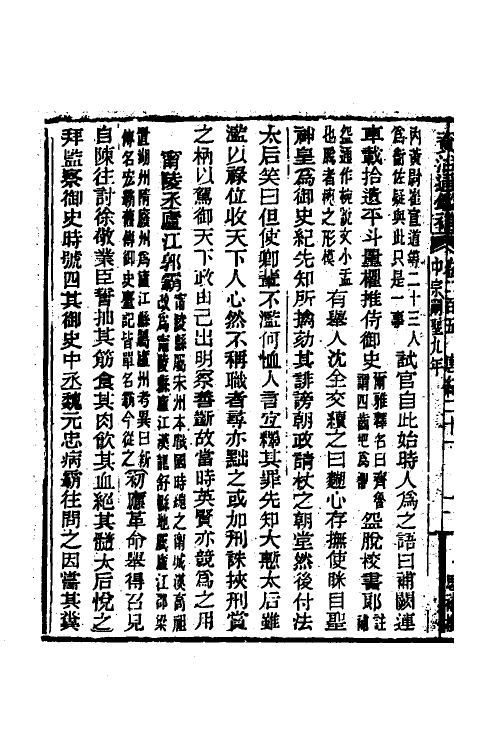 資治通鑑補 卷二百五 唐紀二十一
中宗嗣聖九年
內黃尉崔宣道等二十三人
為衞佐疑與此只是一事 試官自此始時人為之語曰補闕連
車載拾遺平斗量欋推侍御史 爾雅釋名曰齊魯
謂四齒杷為欋 盌脫校書郎 註
盌通作椀說文小盂
也脫者椀之形模 有舉人沈全交續之曰麪心存撫使眯目聖
神皇為御史紀先知所擒劾其誹謗朝政請杖之朝堂然後付法
太后笑曰但使卿輩不濫何恤人言宜釋其罪先知大慙太后雖
濫以祿位收天下人心然不稱職者尋亦黜之或加刑誅挾刑賞
之柄以駕御天下政由己出明察善斷故當時英賢亦競為之用
甯陵丞廬江郭霸 甯陵縣屬宋州本戰國時魏之甯城漢高祖
改為甯陵縣廬江漢龍舒縣地屬廬江郡梁
置湖州隋廢州為廬江縣屬廬州考異曰新
傳名宏霸舊傳御史臺記皆單名霸今從之 初應革命舉得召見
自陳往討徐敬業臣誓抽其筋食其肉飲其血絕其髓太后悅之
拜監察御史時號四其御史中丞魏元忠病霸往問之因嘗其糞